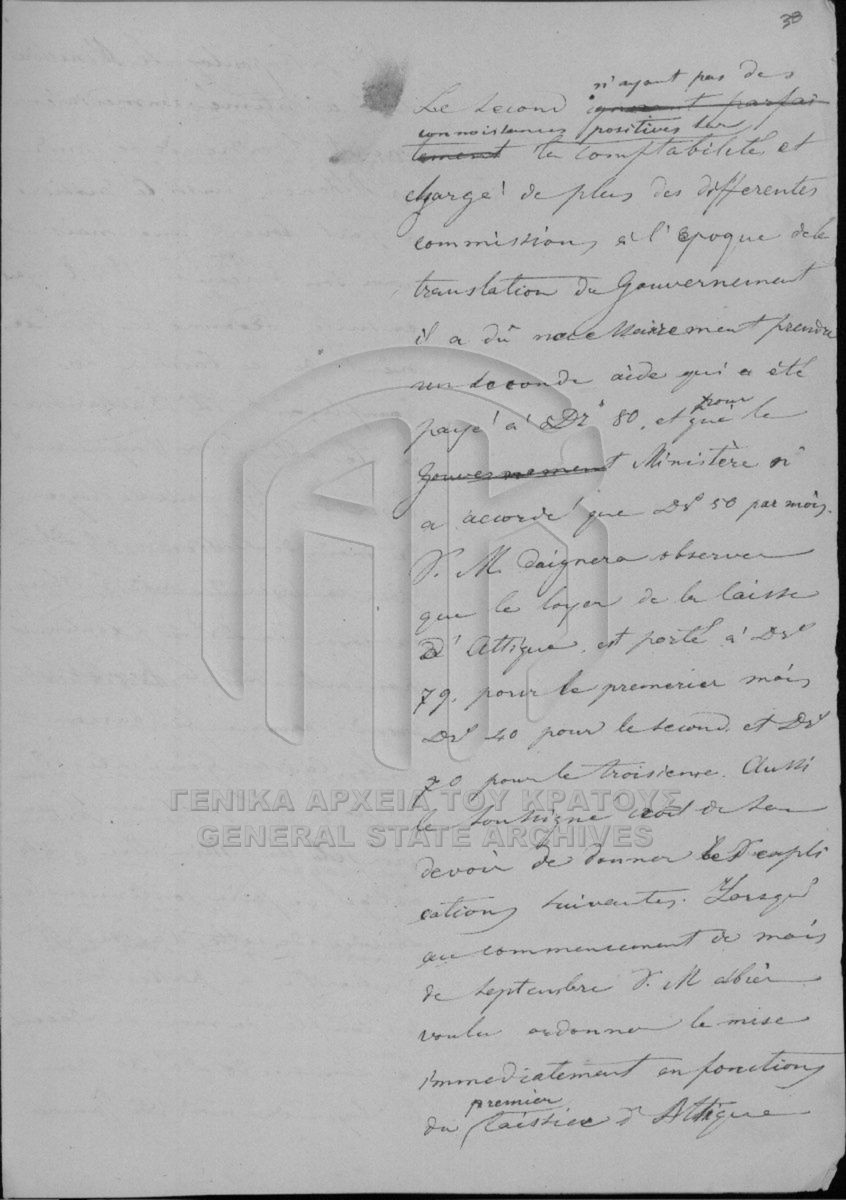 38
n'ayant pas des
Le second ignorant parfai
connoissances positives sur
tement la comptabilité, et
chargé de plus des differentes
commissions à l'epoque de la
translation du Gouvernement
il a dû necessairement prendre
un seconde aide qui a été
payé à Drs 80, et pour
que le
Gouvernement Ministère n'
a accordé que Drs 50 par mois.
S. M. daignera observer
que le loyer de la Caisse
D'Attique, est porté à Drs
79. pour le premerier mois
Drs 40 pour le second et Drs
70 pour le troisieme. Aussi
le soussigné croit de son
devoir de donner les expli
cations suivantes. Lorsque
au commencement de mois
de Septembre S. M. a bien
voulu ordonner la mise
immediatement en fonctions
premier
du Caissier d'Attique
ΓΕΝΙΚΑ ΑΡΧΕΙΑ ΤΟΥ ΚΡΑΤΟΥΣ
GENERAL STATE ARCHIVES